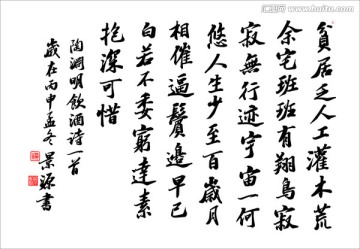 貧居乏人工灌木荒
余宅班班有翔鳥寂
寂無行迹宇宙一何
悠人生少至百歲月
相催逼鬢邊早已
白若不委窮達素
抱深可惜
陶淵明飲酒詩一首
歲在丙申孟冬景源書